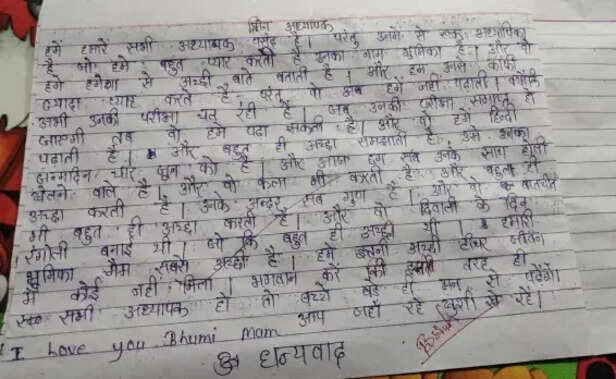 प्रिय अध्यापक
हमें हमारे सभी अध्यापक पसंद है। परंतु उनमें से एक अध्यापिका
है जो हमें बहुत प्यार करती है उनका नाम भूमिका है। और वो
हमें हमेशा से अच्छी बातें बताती है। और हम उनसे काफी
ज्यादा प्यार करते है परंतु वो अब हमें नहीं पढ़ाती। क्योंकि
अभी उनकी परीक्षा चल रही है। जब उनकी परीक्षा समाप्त हो
जाएगी तब वो हमें पढ़ा सकती है। और वो हमें हिन्दी
पढ़ाती है। और बहुत ही अच्छा समझाती है उसे उनका
जन्मदिन चार जून को है। और आज हम सब उनके साथ होली
खेलने वाले है। और वो कला भी करती है और बहुत ही
अच्छा करती है। उनके अन्दर सब गुण है। और वो बातचीत
भी बहुत ही अच्छा करती है। और वो दिवाली के दिन
रंगोली बनाई थी। जो कि बहुत ही अच्छी थी। हमारी
भूमिका मैम सबसे अच्छी है। हमें इतनी अच्छी टीचर
में कोई नहीं मिला। भगवान करे कि इनकी तरह ही
सभी अध्यापक हो तो बच्चे बड़े ही मन से पढ़ेंगे।
आप जहाँ रहे खुशी से रहें।
I love you Bhumi Mam
धन्यवाद